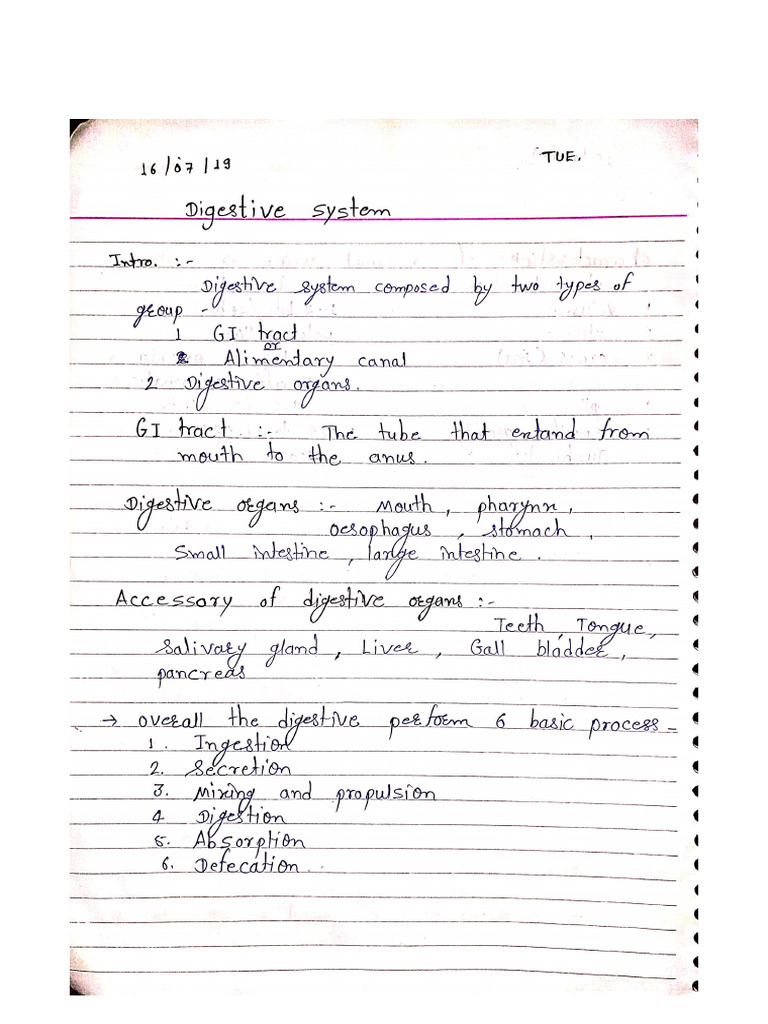 16/07/19
TUE.
Digestive system
Intro. :-
Digestive system composed by two types of
group -
1 GI tract
or
Alimentary canal
2 Digestive organs.
GI tract :- The tube that entand from
mouth to the anus.
Digestive organs :- Mouth, pharynx,
oesophagus, stomach,
Small intestine, large intestine.
Accessory of digestive organs :-
Teeth, Tongue,
Salivary gland, Liver, Gall bladder,
pancreas
→ overall the digestive perform 6 basic process -
1. Ingestion
2. Secretion
3. Mixing and propulsion
4 Digestion
5. Absorption
6. Defecation.